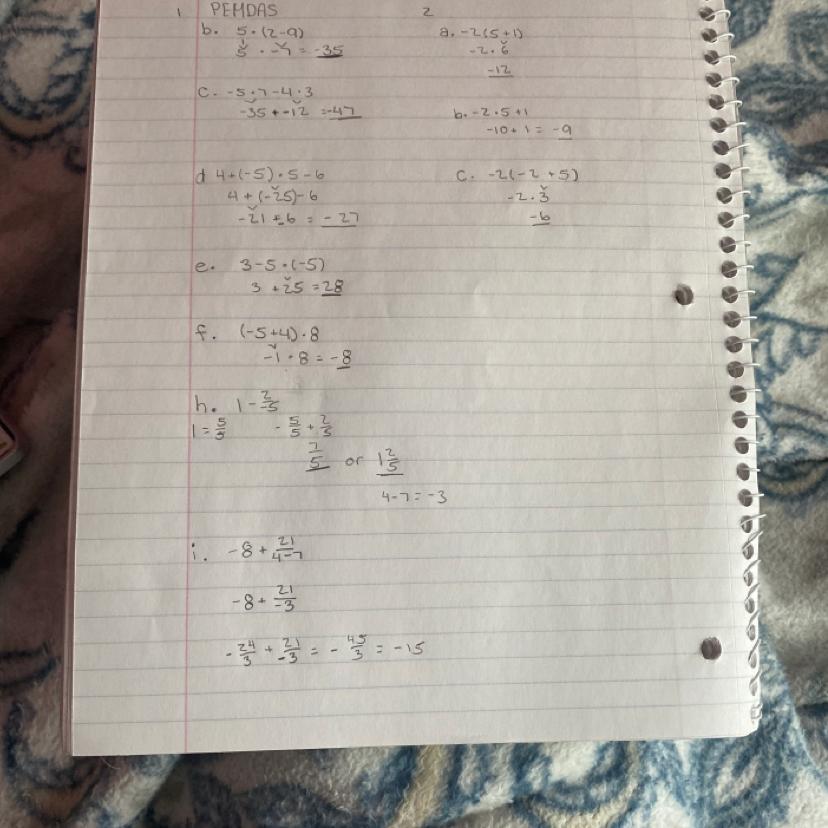 1 PEMDAS
b. 5·(2-9)
5 · -7 = -35
c. -5·7-4·3
-35 + -12 = -47
d 4+(-5)·5-6
4+(-25)-6
-21 + -6 = -27
e. 3-5·(-5)
3 +25 = 28
f. (-5+4)·8
-1 · 8 = -8
h. 1 - 2/-5
1 = 5/5 - 5/5 + 2/5
7/5 or 1 2/5
4-7=-3
i. -8 + 21/4-7
-8 + 21/-3
- 24/3 + 21/-3 = - 45/3 = -15
2
a. -2(5+1)
-2·6
-12
b. -2·5+1
-10+1 = -9
c. -2(-2+5)
-2·3
-6